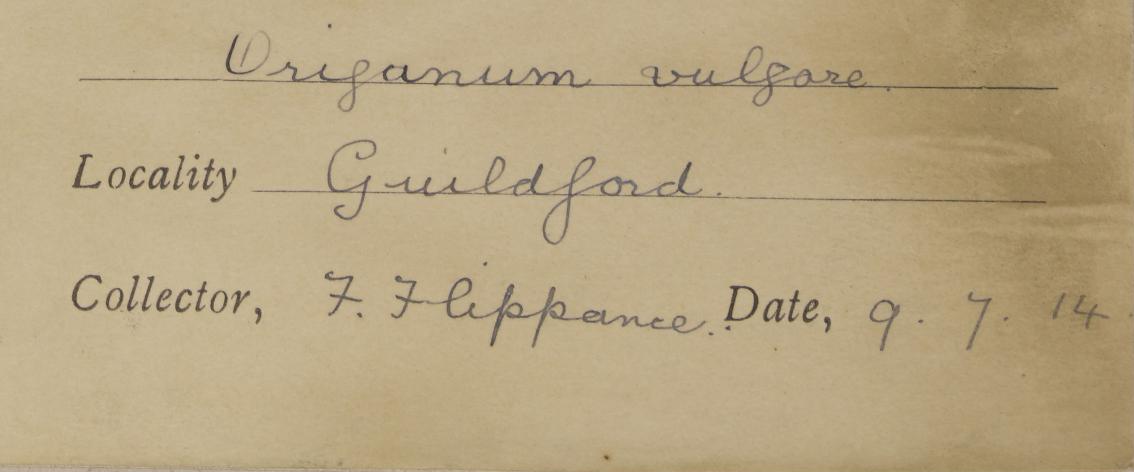 Origanum vulgare.
Locality Guildford.
Collector, F. Flippance. Date, 9. 7. 14.